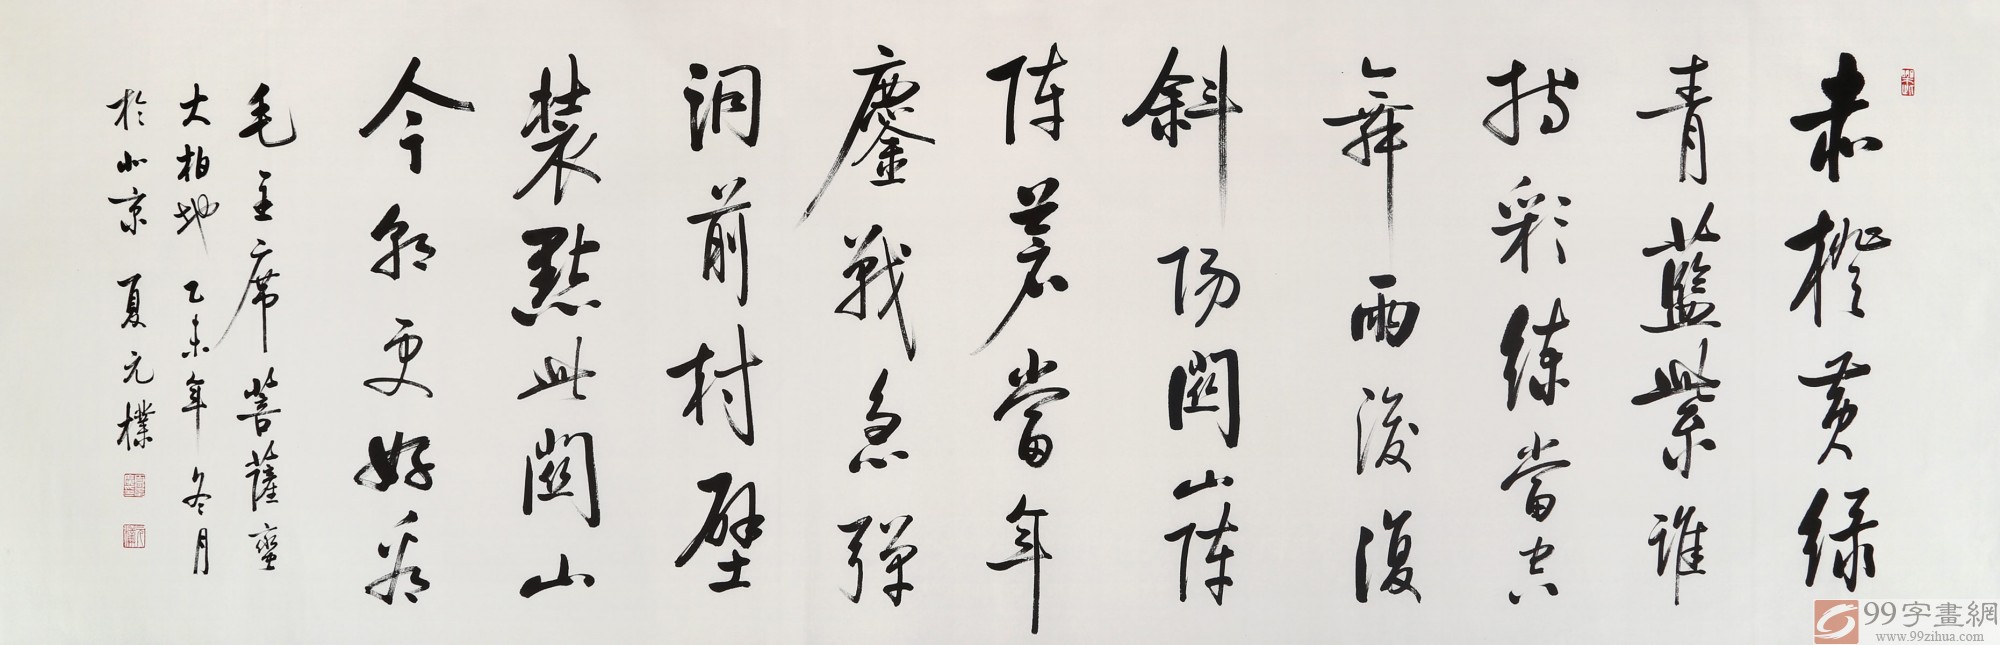 赤橙黄绿
青蓝紫谁
持彩练当空
舞雨後復
斜阳関山陣
阵苍當年
鏖戰急弹
洞前村壁
装點此関山
今朝更好看
毛主席菩薩蛮
大柏地乙未年冬月
於北京夏元樸
99字畫網
www.99zihua.com